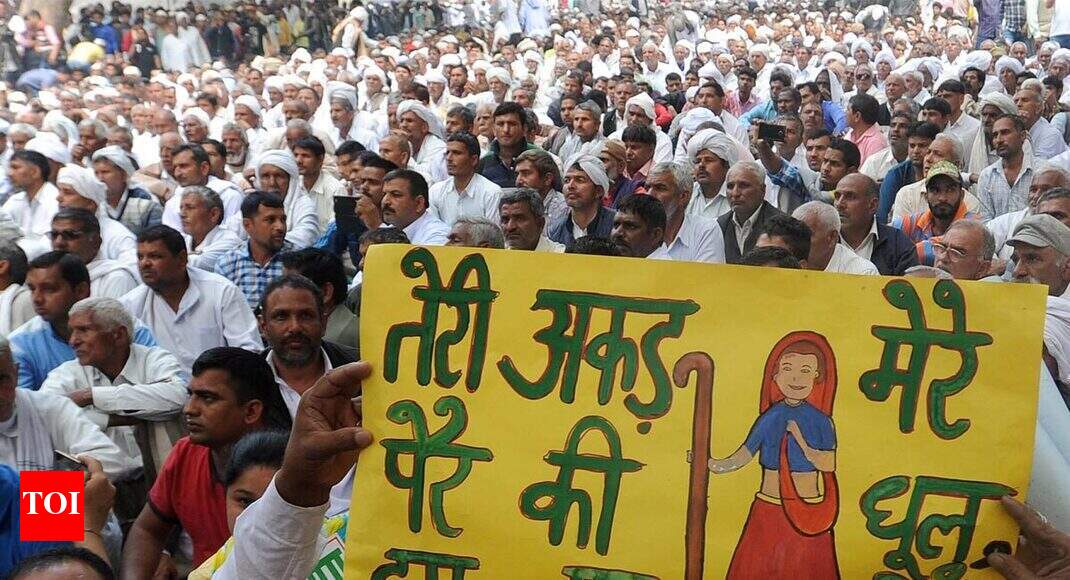 तेरी अकड़ मेरे
पैर की धूल
TOI